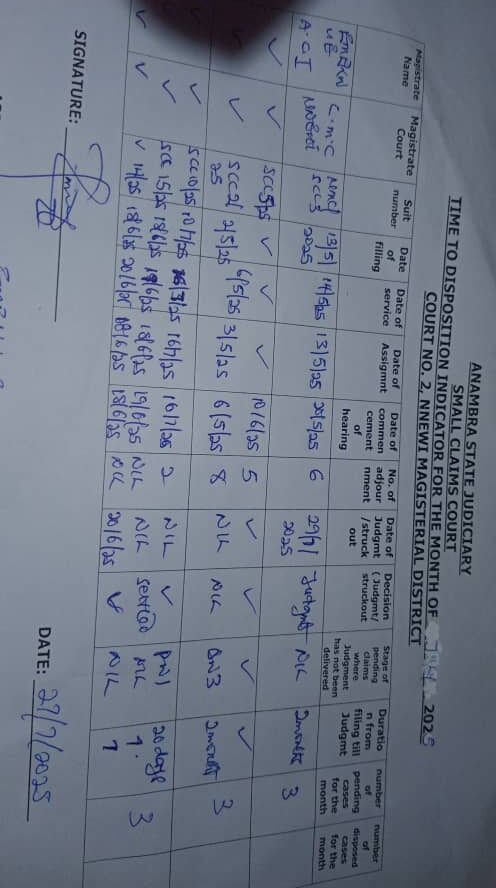 ANAMBRA STATE JUDICIARY
SMALL CLAIMS COURT
TIME TO DISPOSITION INDICATOR FOR THE MONTH OF 2025
COURT NO. 2, NNEWI MAGISTERIAL DISTRICT
Magistrate Name | Magistrate Court | Suit number | Date of filling | Date of service | Date of Assignmt | Date of commen cement of hearing | No. of adjour nment | Date of Judgmt /struck out | Decision (Judgmt/ struckout | Stage of pending claims where Judgment has not been delivered | Duratio n from filing till Judgmt | number of pending cases for the month | number of disposed cases for the month
C.M.C | 13/5/2025 | 14/5/25 | 13/5/25 | 20/5/25 | 6 | 29/7/2025 | Judgmt | NIL | 2months | 3
✓ | ✓ | SCC5/25 | ✓ | ✓ | ✓ | 10/6/25 | 5 | ✓ | ✓ | ✓ | ✓
✓ | ✓ | 2/5/25 | 6/5/25 | 3/5/25 | 6/5/25 | 8 | NIL | NIL | DW3 | 3
✓ | ✓ | SCC10/25 | 10/7/25 | 16/7/25 | 16/7/25 | 2 | NIL | ✓ | PW1 | 20 days | 3
✓ | ✓ | SCC 15/25 | 18/6/25 | 19/6/25 | 18/6/25 | 19/6/25 | NIL | NIL | settled | NIL
✓ | ✓ | ✓ 14/25 | 18/6/25 | 20/6/25 | 18/6/25 | 18/6/25 | NIL | 20/6/25 | ✓ | NIL
SIGNATURE:
DATE: 29/7/2025